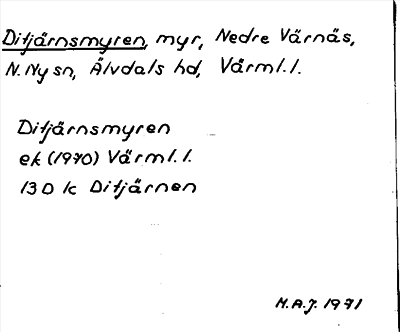 Ditjärnsmyren, myr, Nedre Värnäs,
N. Ny sn, Älvdals hd, Värml. l.
Ditjärnsmyren
ek (1970) Värml. l.
13 D 1c Ditjärnen
M.A.J. 1971